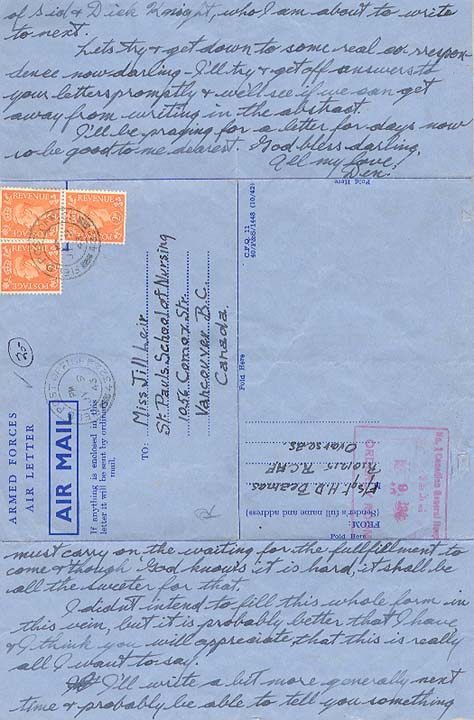 of Sid & Dick Knight, who I am about to write
to next.
Lets try & get down to some real correspon-
dence now darling - I'll try & get off answers to
your letters promptly & we'll see if we can get
away from writing in the abstract.
I'll be praying for a letter for days now
so be good to me dearest. God bless darling.
All my love!
Den.
Fold Here
REVENUE
REVENUE
POSTAGE
POSTAGE
25
ARMED FORCES
AIR LETTER
AIR MAIL
If anything is enclosed in this
letter it will be sent by ordinary
mail.
TO:
Miss Jill Lair
St. Pauls School of Nursing
1056 Comox Str.
Vancouver B.C.
Canada.
C.F.O. 11
Fold Here
FROM:
(Sender's full name and address)
H D
R.C.A.F.
Overseas
No. Canadian General Hosp
9
Fold Here
must carry on the waiting for the fullfillment to
come & though God knows it is hard, it shall be
all the sweeter for that.
I didnt intend to fill this whole form in
this vein, but it is probably better that I have
& I think you will appreciate that this is really
all I want to say.
I'll write a bit more generally next
time & probably be able to tell you something